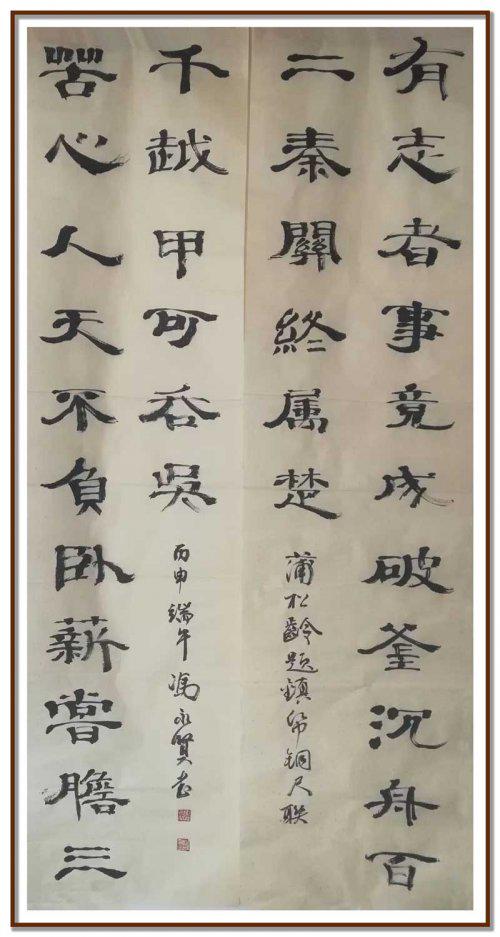 有志者事竟成破釜沉舟百
二秦關終属楚
蒲松齡题鎮帋铜尺联
苦心人天不負卧薪嘗膽三
千越甲可吞吳
丙申端午馮永賢书